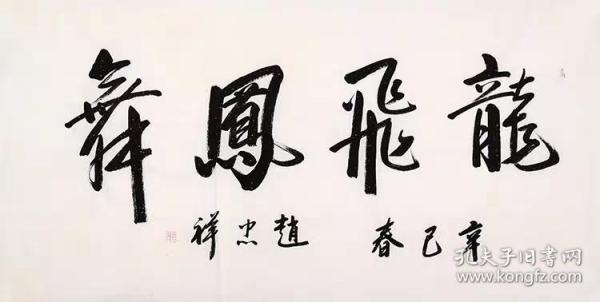 龍飛鳳舞
辛巳春 趙忠祥
孔夫子旧书网
www.kongfz.com